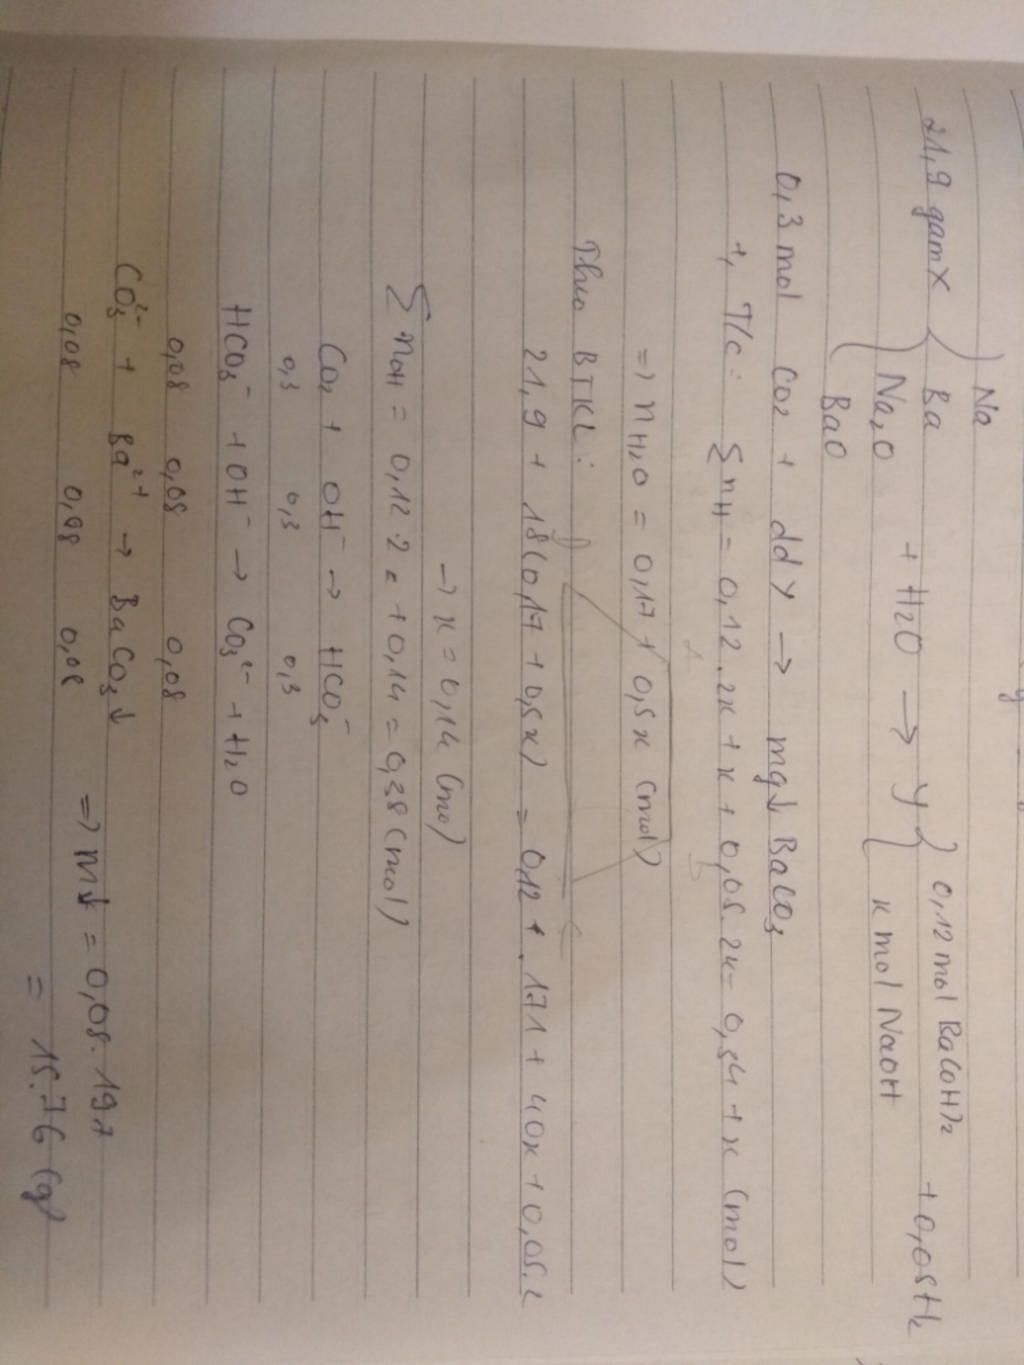 Na
21,9 gam X { Ba + H2O → Y { 0,12 mol Ba(OH)2 + 0,05 H2
Na2O x mol NaOH
BaO
0,3 mol CO2 + dd Y → mg↓ BaCO3
+, T/c: ∑nH = 0,12.2x + x + 0,05.2x = 0,34 + x (mol)
=> nH2O = 0,17 + 0,5x (mol)
Theo BTKL:
21,9 + 18(0,17 + 0,5x) = 0,12 . 171 + 40x + 0,05.2
→ x = 0,14 (mo)
∑nOH = 0,12.2 + 0,14 = 0,38 (mol)
CO2 + OH⁻ → HCO3⁻
0,3 0,3 0,3
HCO3⁻ + OH⁻ → CO3²⁻ + H2O
0,08 0,08 0,08
CO3²⁻ + Ba²⁺ → BaCO3↓ => m↓ = 0,08.197
0,08 0,08 0,08 = 15.76 (g)